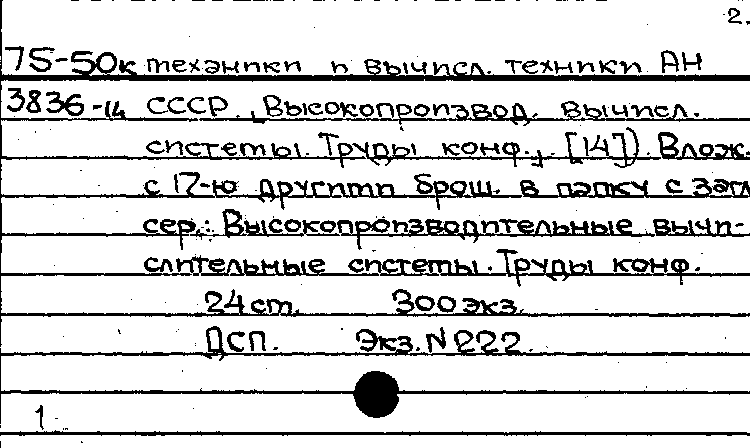 2.
75-50к механики и вычисл. техники АН
3836-14 СССР. Высокопроизвод. вычисл.
системы. Труды конф., [14]). Влож.
с 17-ю другими брош. в папку с загл
сер.: Высокопроизводительные вычи-
слительные системы. Труды конф.
24 ст. 300 экз.
ДСП. Экз. N 222.
1